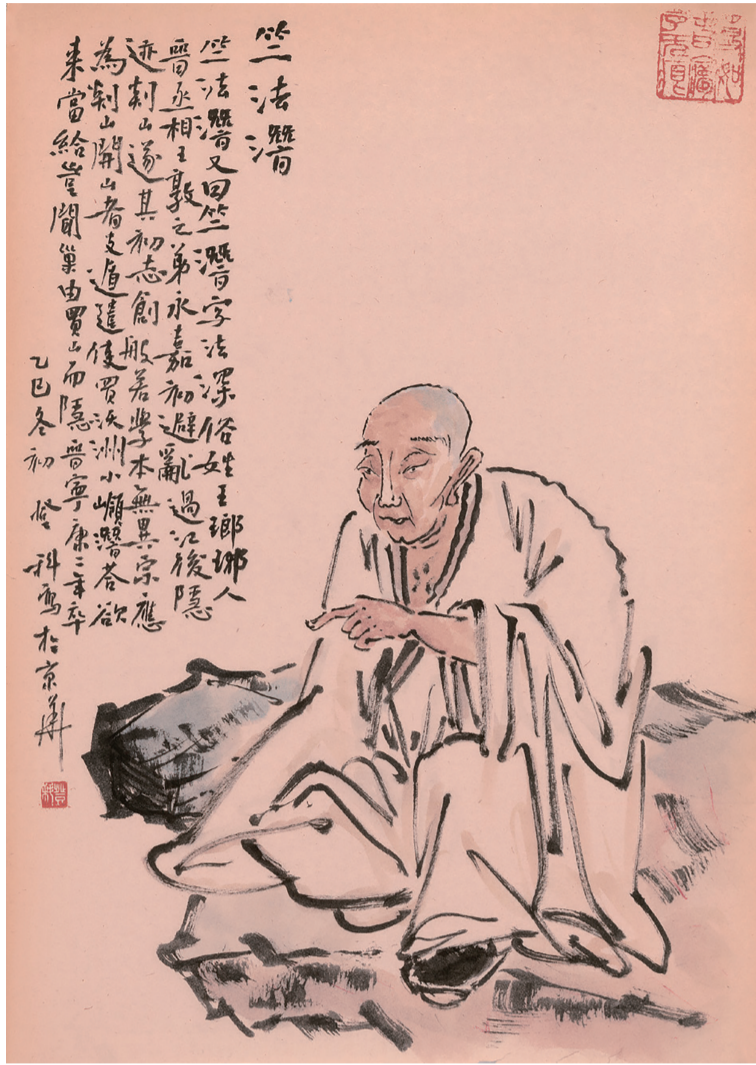 竺法潛
竺法潛又曰竺潛字法深俗姓王瑯琊人
晉丞相王敦之弟永嘉初避亂過江後隱
迹剡山遂其初志創般若學本無異宗應
為剡山開山者支遁遣使買沃洲小嶺潛答欲
來當給豈聞巢由買山而隱晉寧康二年卒
乙巳冬初科寫於京華